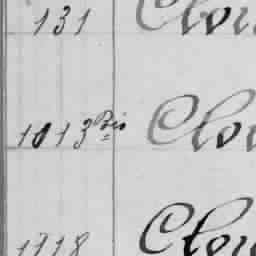 131 Clou
1013 Bis Clou
1118 Clou